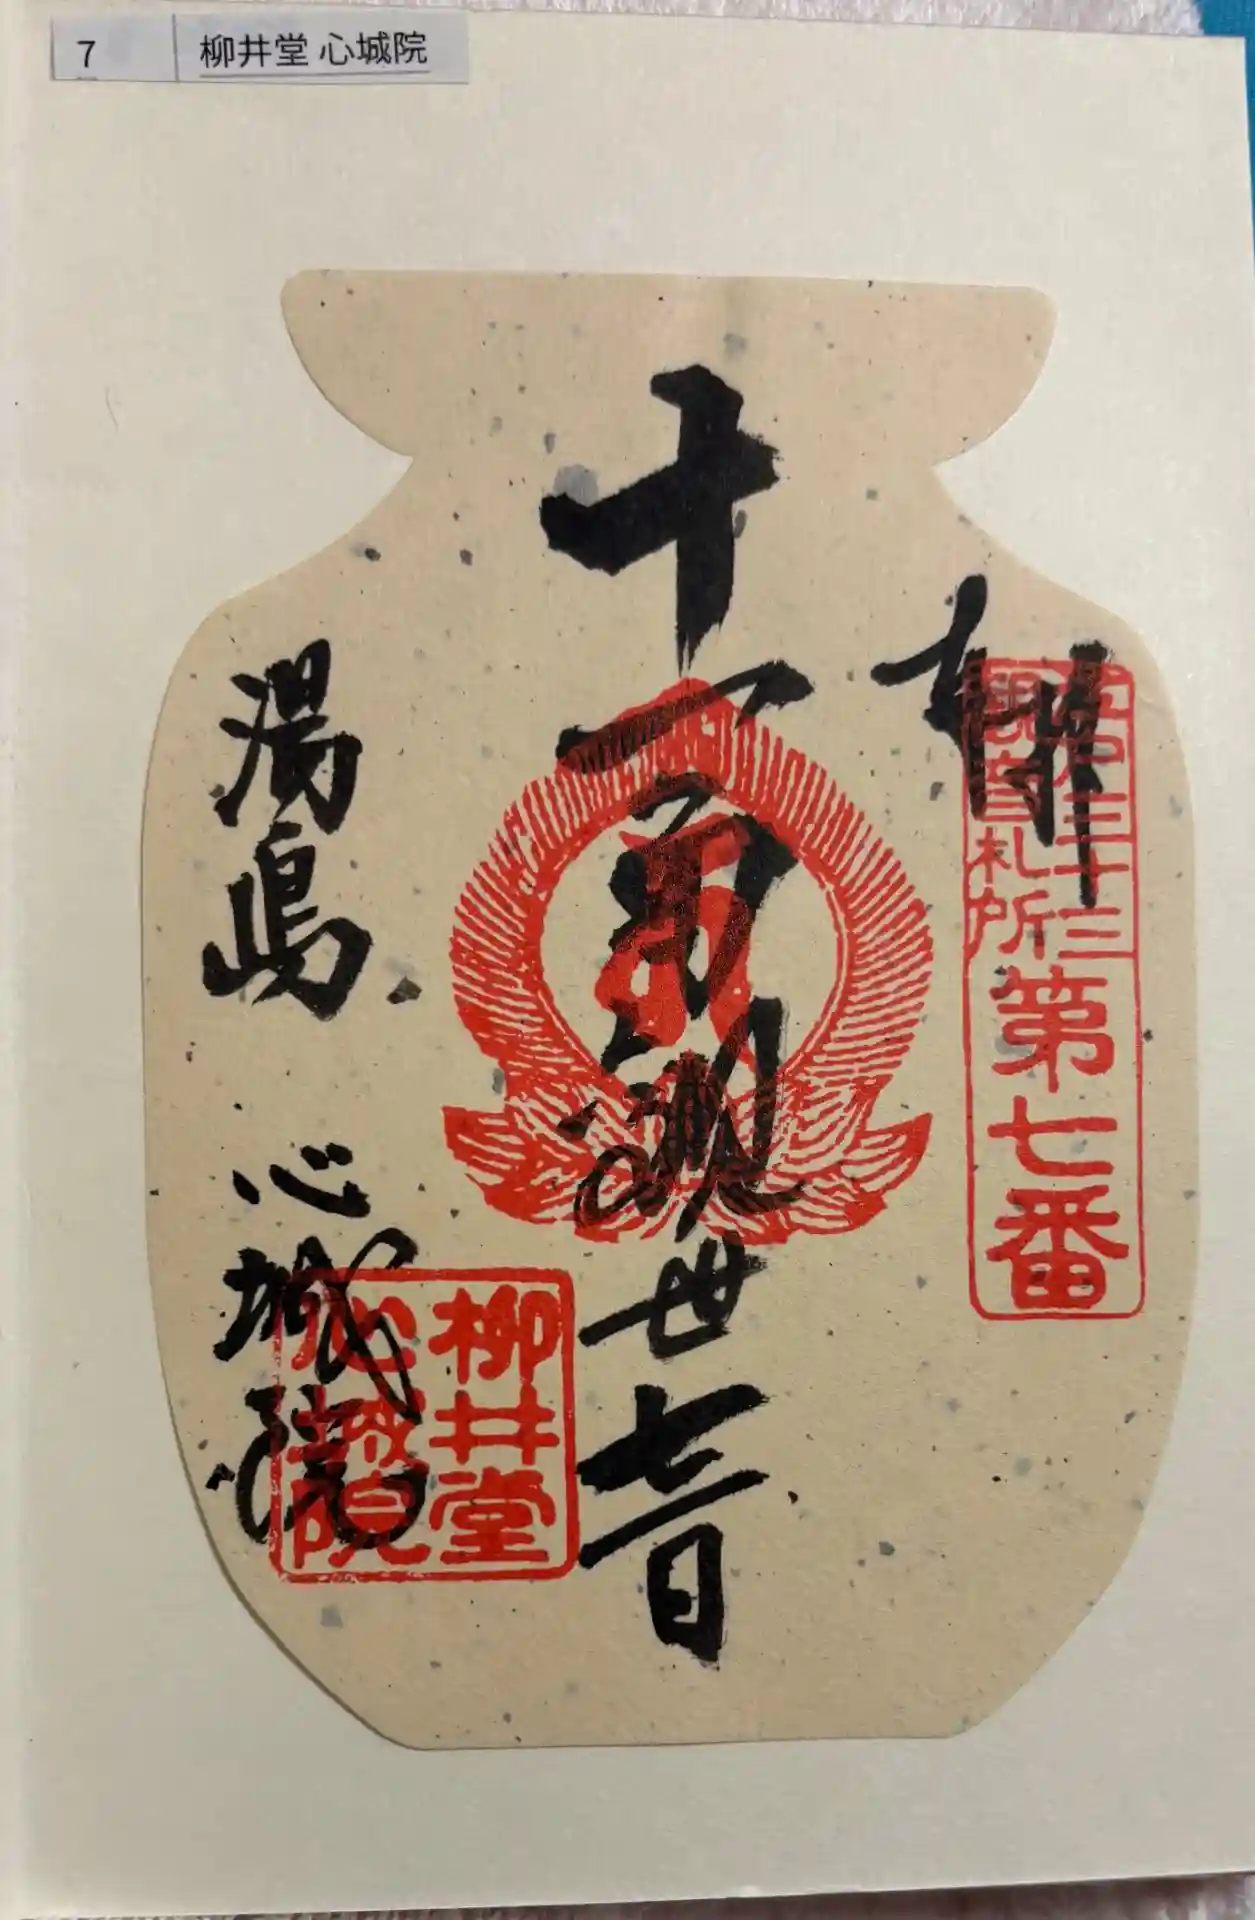 7 柳井堂 心城院
拝
江戸三十三
観音札所
第七番
十一面観世音
湯島 心城院
柳井堂
心城院